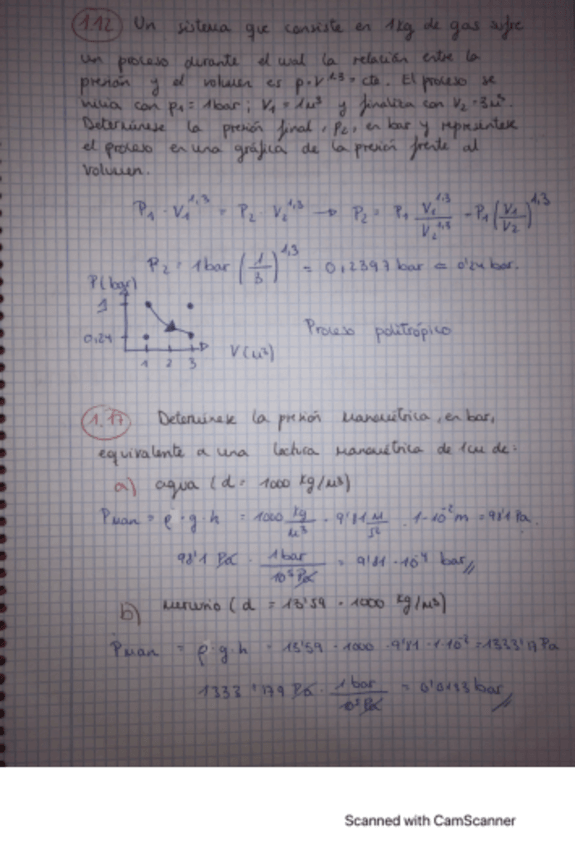 1.12 Un sistema que consiste en 1 kg de gas sufre
un proceso durante el cual la relación entre la
presión y el volumen es p·V^1,3 = cte. El proceso se
inicia con p₁ = 1bar ; V₁ = 1m³ y finaliza con V₂ = 3m³.
Determínese la presión final, P₂, en bar y represéntese
el proceso en una gráfica de la presión frente al
volumen.
P₁ · V₁^1,3 = P₂ · V₂^1,3 → P₂ = P₁ V₁^1,3 / V₂^1,3 = P₁ (V₁/V₂)^1,3
P₂ = 1bar (1/3)^1,3 = 0,2397 bar = 0'24 bar.
P(bar)
1
0,24
1 2 3
V(m³)
Proceso politrópico
1.17 Determínese la presión manométrica, en bar,
equivalente a una lectura manométrica de 1cm de:
a) agua (d = 1000 kg/m³)
Pman = ρ · g · h = 1000 kg/m³ · 9'81 m/s² · 1·10⁻² m = 98'1 Pa.
98'1 Pa · 1bar / 10⁵ Pa = 9'81 · 10⁻⁴ bar
b) mercurio (d = 13'59 · 1000 kg/m³)
Pman = ρ · g · h = 13'59 · 1000 · 9'81 · 1·10⁻² = 1333'17 Pa
1333'179 Pa · 1 bar / 10⁵ Pa = 0'0133 bar
Scanned with CamScanner